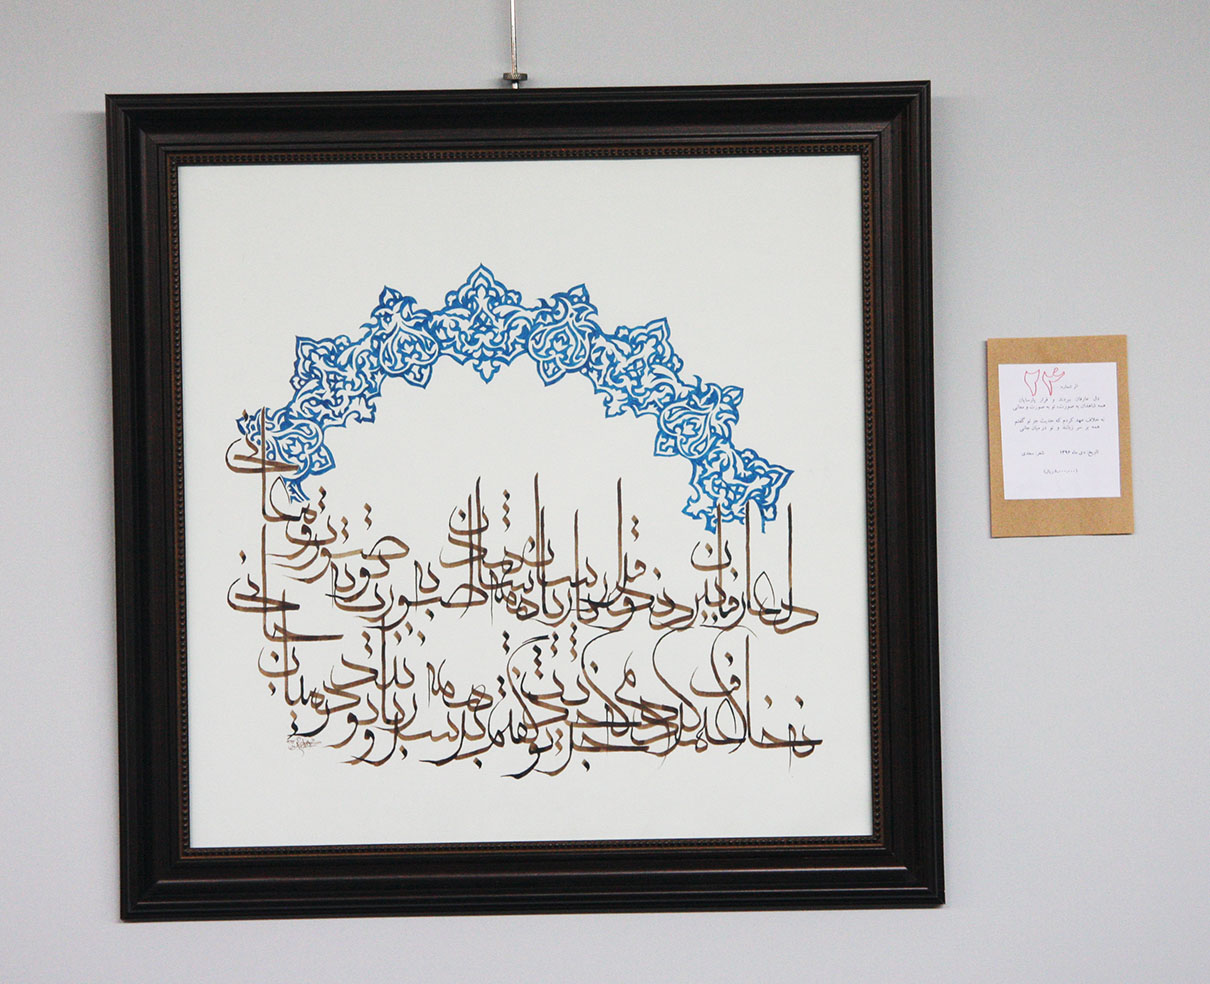 دل عارفان ببردند و قرار پارسایان همه شاهدان به صورت تو به صورت و معانی
نه خلاف عهد کردم که حدیث جز تو گفتم همه بر سر زبانند و تو در میان جانی
اثر شماره: ۲۴
دل عارفان ببردند و قرار پارسایان
همه شاهدان به صورت، تو به صورت و معانی
نه خلاف عهد کردم که حدیث جز تو گفتم
همه بر سر زبانند و تو در میان جانی
تاریخ: دی ماه ۱۳۹۶ شعر: سعدی
ریال